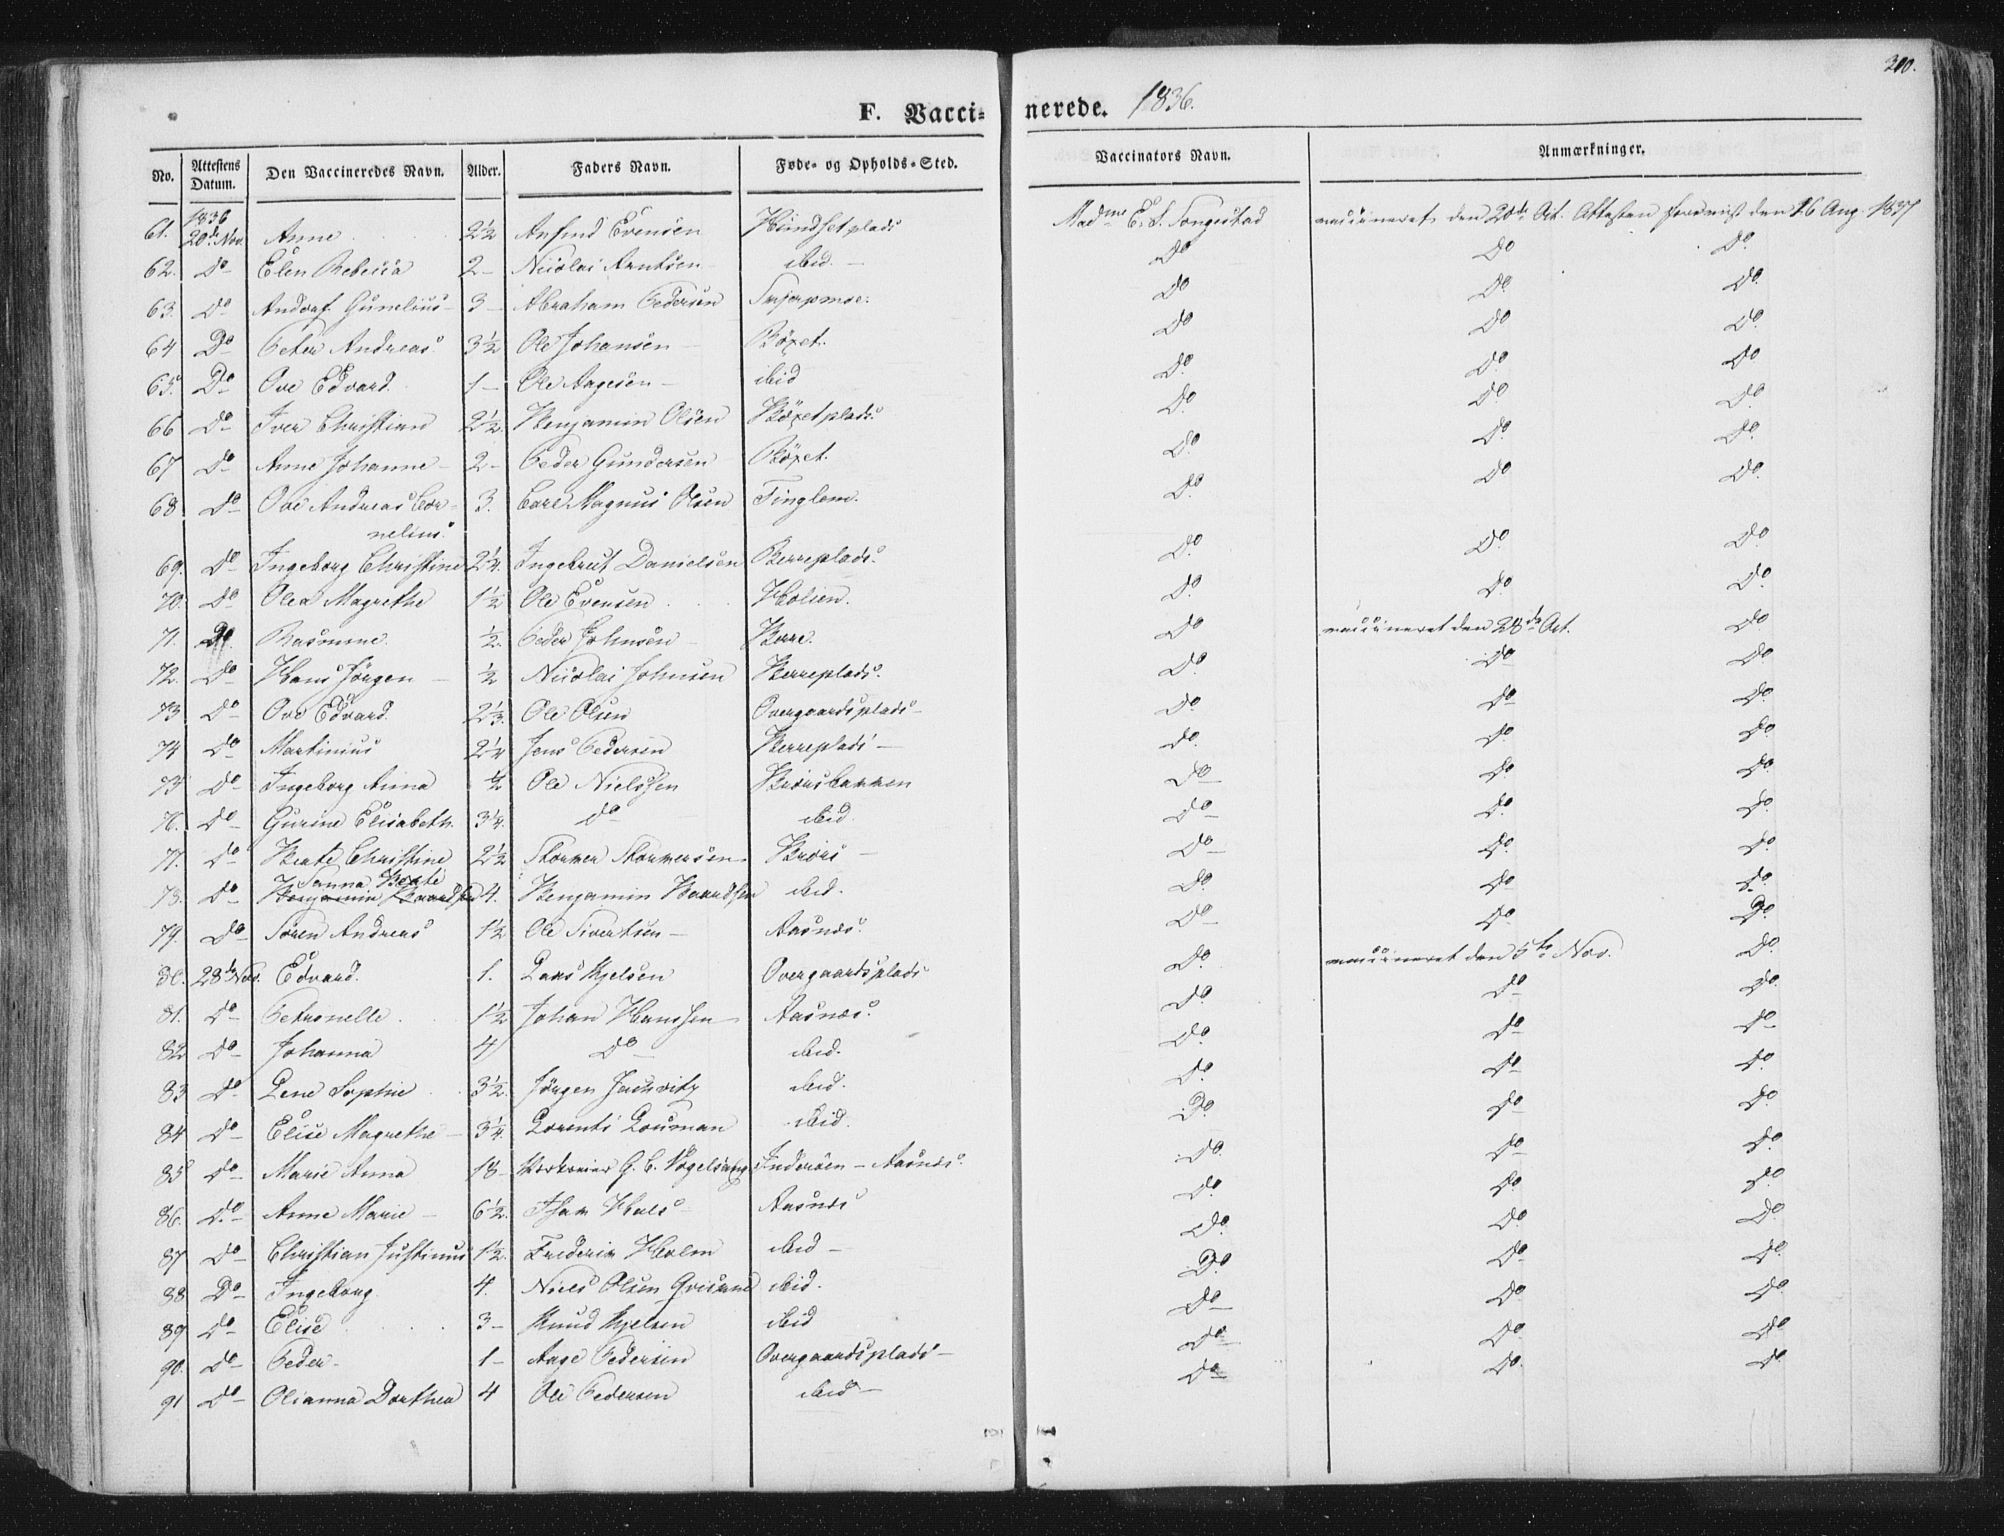 310.
F. Vacci- nerede. 1836.
No. Attestens Datum. Den Vaccineredes Navn. Alder. Faders Navn. Føde- og Opholds-Sted. Vaccinators Navn. Anmærkninger.
1836
61. 20de Nov. Anne 2½ Anfind Evensen Hundsetplads Madme E. S. Songestad vaccineret den 20de Oct. Attesten forevist den 16 Aug. 1837
62. Do Elen Rebecca 2 Nicolai Arntsen ibid. Do Do Do.
63. Do Andorf Gunelius 3 Abraham Pedersen Do Do. Do.
64 Do Peter Andreas 3½ Ole Johansen Böxet. Do Do Do
65. Do Ove Edvard. 1 Ole Aagesen ibid Do Do. Do
66 Do Iver Christian 2½ Benjamin Olsen Böxetplads. Do. Do Do.
67 Do Anne Johanne 2 Peder Gundersen Böxet. Do. Do. Do.
68 Do Ove Andreas Cor- 3. Carl Magnus Olsen Tinglem. Do. Do Do.
nelius.
69. Do Ingeborg Christine 2¼. Ingebrut Danielsen Berreplads. Do. Do. Do.
70. Do Olea Magrethe 1½ Ole Evensen Holien. Do. Do Do.
71. Do Rasmine ½. Peder Johnsen Berre. Do vaccineret den 28de Oct. Do
72. Do Hans Jörgen ½ Nicolai Johnsen Berreplads. Do. Do Do
73 Do Ove Edvard. 2⅓. Ole Olsen Overgaardsplads Do Do Do.
74 Do Martinus 2¼ Jens Pedersen Berreplads Do. Do Do
75 Do Ingeborg Anna ½ Ole Nielssen Do Do Do.
76. Do Gurine Elisabeth. 3¼. do ibid Do Do. Do.
77. Do Berte Christine 2½ Stormer Stormersen Do Do. Do.
Sanna Berte
78. Do Benjamin Baardsen 4. Benjamin Baardsen ibid. Do. Do Do
79. Do Sören Andreas 1½ Ole Sivertsen Aasnes. Do Do. Do.
80. 28de Nov. Edvard. 1. Laas Kjelsen Overgaardsplads Do. vaccineret den 5te Nov. Do.
81. Do Petronelle 1½ Johan Hanssen Aasnæs. Do. Do Do.
82 Do Johanna 4 Do ibid. Do. Do Do
83 Do Lene Sophie 3½. Jörgen ibid. Do. Do Do.
84 Do Elise Magrethe 3¼. Lorents Louman ibid. Do. Do Do.
85 Do Marie Anna 18 G. C. Vogelsang Inderöen - Aasnes. Do. Do Do.
86. Do. Anne Marie 6½. Tham Hals Aasnes Do. Do. Do.
87 Do Christian Justinus 1½. Frederik Holm ibid Do. Do Do.
88 Do Ingeborg 4. Niels Olsen ibid. Do. Do Do.
89 Do Elise 3 Knud Kjelsen ibid Do Do. Do.
90. Do Peder 1 Aage Pedersen Overgaardsplads Do Do Do
91 Do Olianna Dorthea 4 Ole Pedersen ibid Do Do. Do.